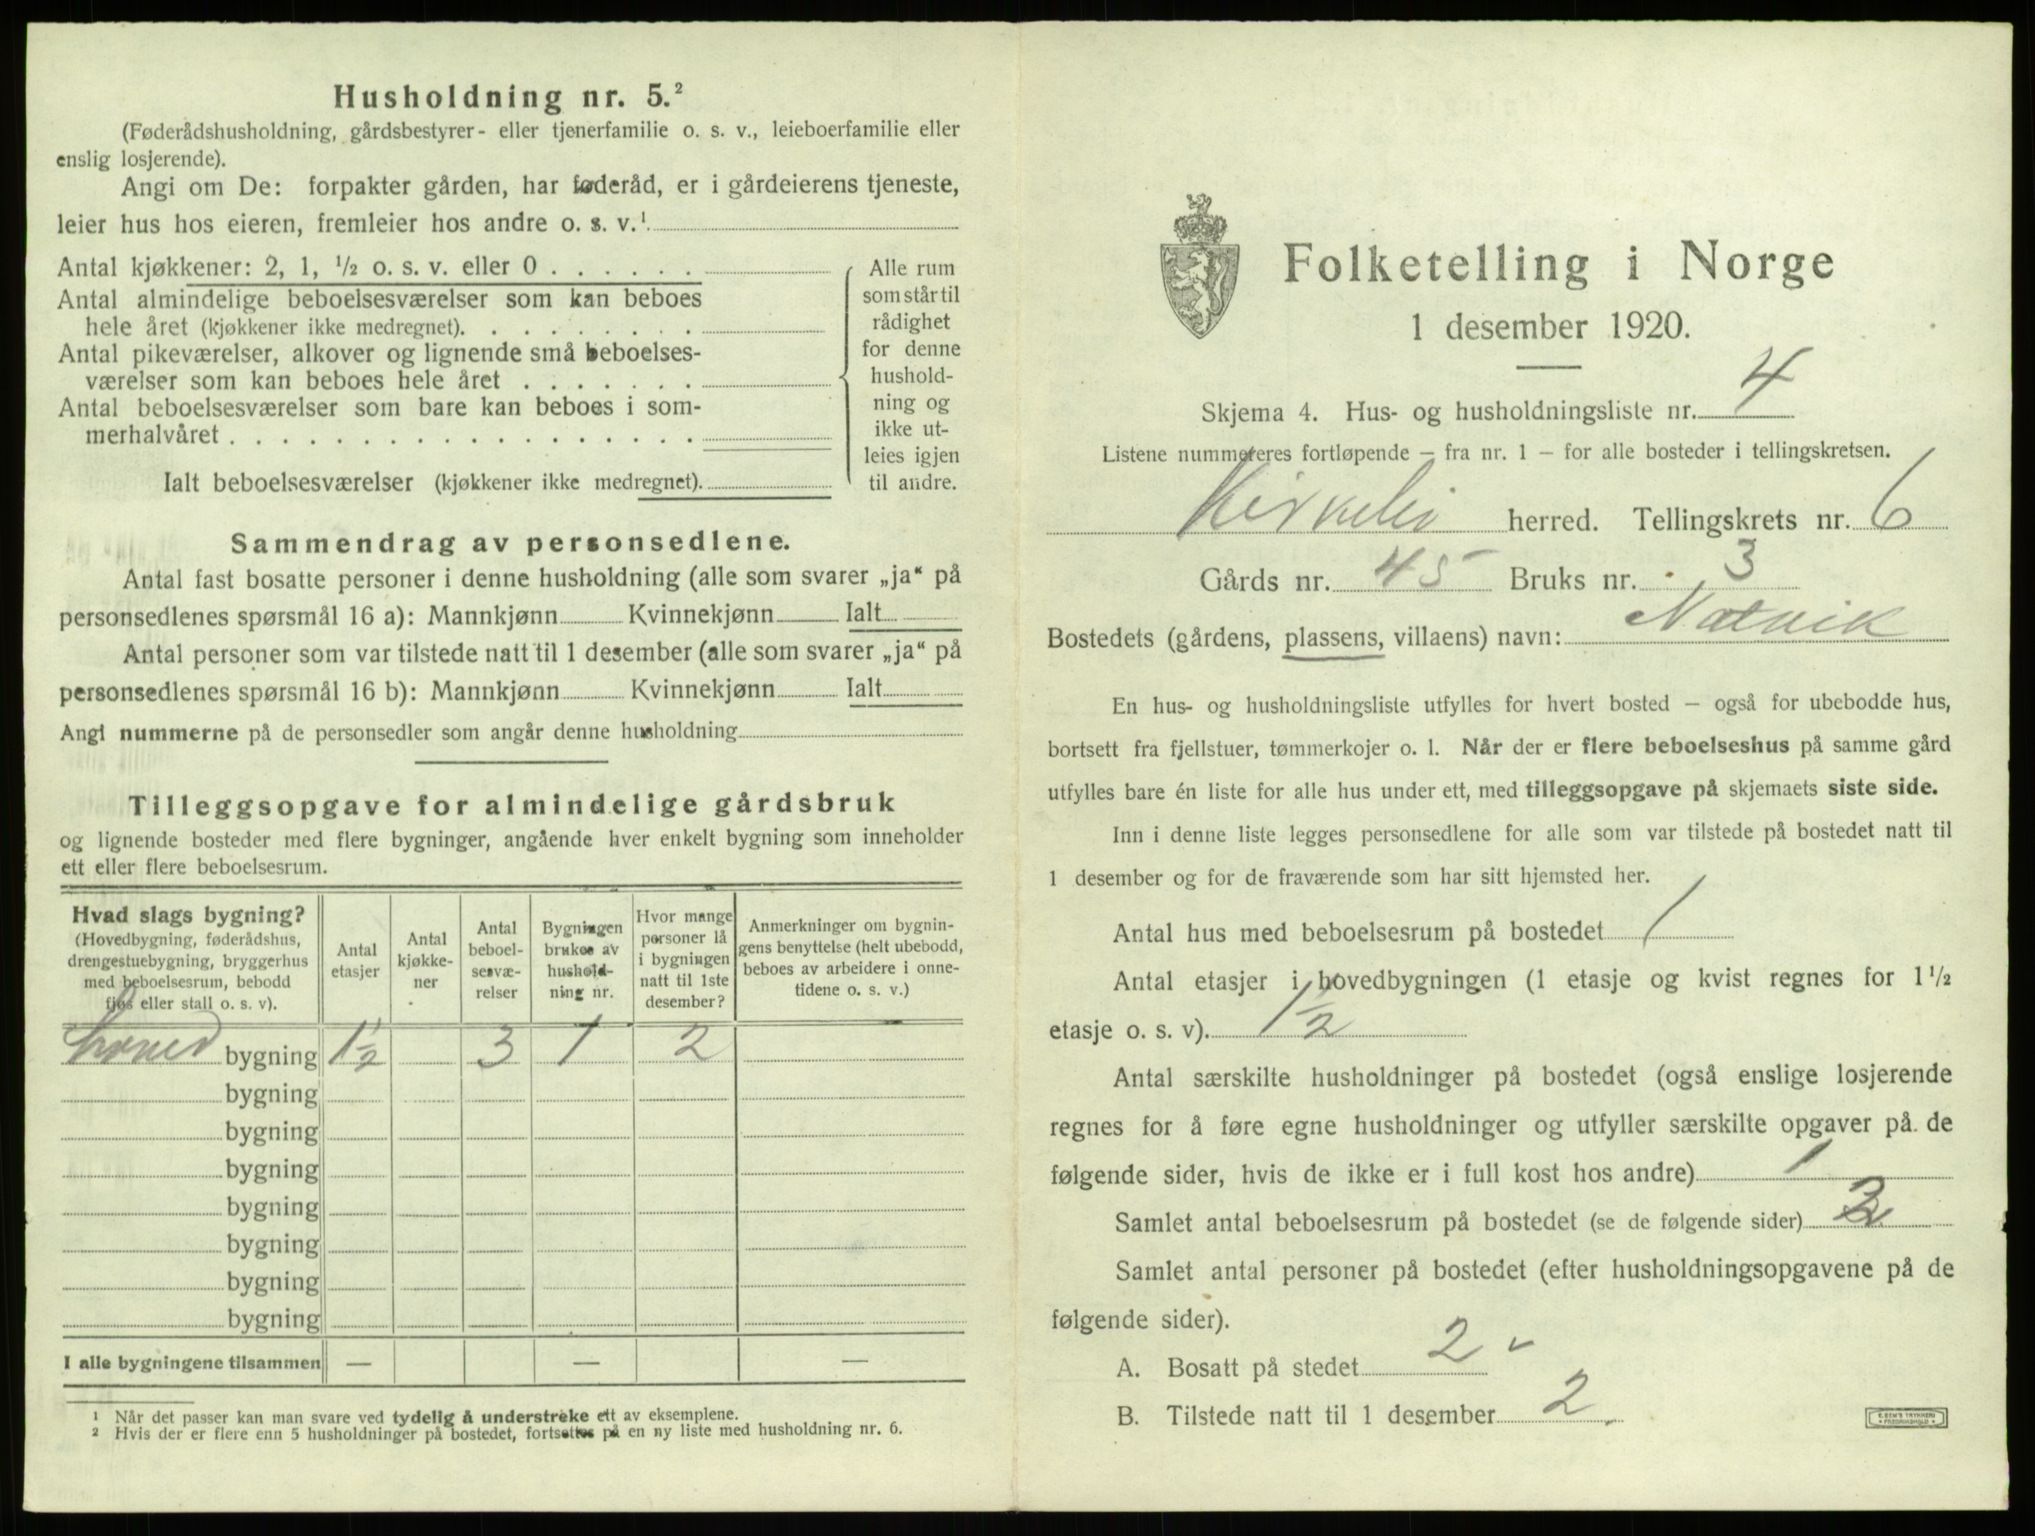 Husholdning nr. 5.²
(Føderådshusholdning, gårdsbestyrer- eller tjenerfamilie o. s. v., leieboerfamilie eller
enslig losjerende).
Angi om De: forpakter gården, har føderåd, er i gårdeierens tjeneste,
leier hus hos eieren, fremleier hos andre o. s. v.¹
Antal kjøkkener: 2, 1, ½ o. s. v. eller 0 . . . . . .
Antal almindelige beboelsesværelser som kan beboes
hele året (kjøkkener ikke medregnet). . . . . . . . . .
Antal pikeværelser, alkover og lignende små beboelses-
værelser som kan beboes hele året . . . . . . .
Antal beboelsesværelser som bare kan beboes i som-
merhalvåret . . . . . . . . . . . . . . . . . .
Ialt beboelsesværelser (kjøkkener ikke medregnet).
Alle rum
som står til
rådighet
for denne
hushold-
ning og
ikke ut-
leies igjen
til andre.
Sammendrag av personsedlene.
Antal fast bosatte personer i denne husholdning (alle som svarer „ja“ på
personsedlenes spørsmål 16 a): Mannkjønn Kvinnekjønn Ialt
Antal personer som var tilstede natt til 1 desember (alle som svarer „ja“ på
personsedlenes spørsmål 16 b): Mannkjønn Kvinnekjønn Ialt
Angi nummerne på de personsedler som angår denne husholdning
Tilleggsopgave for almindelige gårdsbruk
og lignende bosteder med flere bygninger, angående hver enkelt bygning som inneholder
ett eller flere beboelsesrum.
Hvad slags bygning?
(Hovedbygning, føderådshus,
drengestuebygning, bryggerhus
med beboelsesrum, bebodd
fjøs eller stall o. s. v).
Antal
etasjer
Antal
kjøkke-
ner
Antal
beboel-
sesvæ-
relser
Bygningen
brukes av
hushold-
ning nr.
Hvor mange
personer lå
i bygningen
natt til 1ste
desember?
Anmerkninger om bygnin-
gens benyttelse (helt ubebodd,
beboes av arbeidere i onne-
tidene o. s. v.)
hoved bygning 1½ 3 1 2
bygning
bygning
bygning
bygning
bygning
bygning
bygning
I alle bygningene tilsammen — — —
¹ Når det passer kan man svare ved tydelig å understreke ett av eksemplene.
² Hvis der er flere enn 5 husholdninger på bostedet, fortsettes på en ny liste med husholdning nr. 6.
Folketelling i Norge
1 desember 1920.
Skjema 4. Hus- og husholdningsliste nr. 4
Listene nummereres fortløpende — fra nr. 1 — for alle bosteder i tellingskretsen.
herred. Tellingskrets nr. 6
Gårds nr. 45 Bruks nr. 3
Bostedets (gårdens, plassens, villaens) navn: Natvik
En hus- og husholdningsliste utfylles for hvert bosted — også for ubebodde hus,
bortsett fra fjellstuer, tømmerkojer o. l. Når der er flere beboelseshus på samme gård
utfylles bare én liste for alle hus under ett, med tilleggsopgave på skjemaets siste side.
Inn i denne liste legges personsedlene for alle som var tilstede på bostedet natt til
1 desember og for de fraværende som har sitt hjemsted her.
Antal hus med beboelsesrum på bostedet 1
Antal etasjer i hovedbygningen (1 etasje og kvist regnes for 1½
etasje o. s. v). 1½
Antal særskilte husholdninger på bostedet (også enslige losjerende
regnes for å føre egne husholdninger og utfyller særskilte opgaver på de
følgende sider, hvis de ikke er i full kost hos andre) 1
Samlet antal beboelsesrum på bostedet (se de følgende sider)
Samlet antal personer på bostedet (efter husholdningsopgavene på de
følgende sider).
A. Bosatt på stedet 2
B. Tilstede natt til 1 desember 2